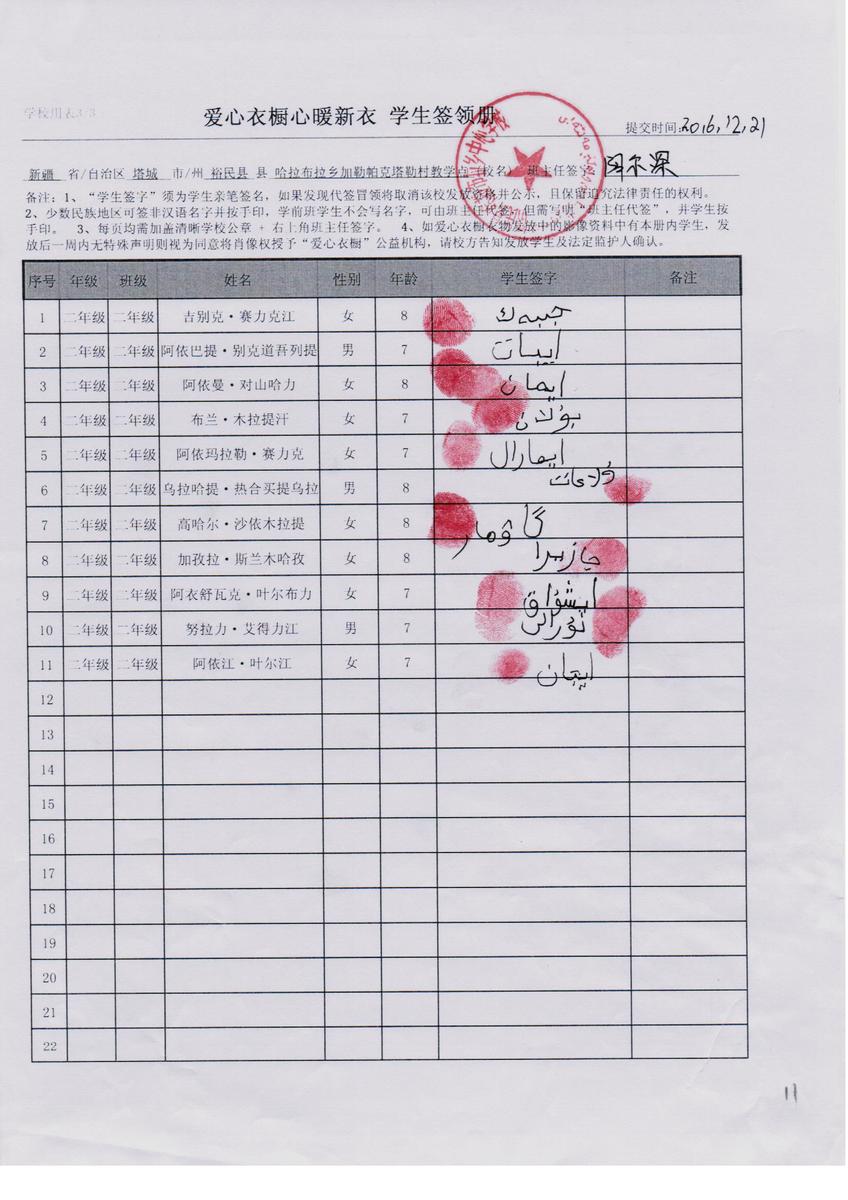 学校用表3/3
爱心衣橱心暖新衣 学生签领册
提交时间:2016,12,21
新疆 省/自治区 塔城 市/州 裕民县 县 哈拉布拉乡加勒帕克塔勒村教学点（校名） 班主任签字
备注：1、“学生签字”须为学生亲笔签名，如果发现代签冒领将取消该校发放资格并公示，且保留追究法律责任的权利。
2、少数民族地区可签非汉语名字并按手印，学前班学生不会写名字，可由班主任代签，但需写明“班主任代签”，并学生按
手印。 3、每页均需加盖清晰学校公章 + 右上角班主任签字。 4、如爱心衣橱衣物发放中的影像资料中有本册内学生，发
放后一周内无特殊声明则视为同意将肖像权授予“爱心衣橱”公益机构，请校方告知发放学生及法定监护人确认。
序号 年级 班级 姓名 性别 年龄 学生签字 备注
1 二年级 二年级 吉别克·赛力克江 女 8 جىبەك
2 二年级 二年级 阿依巴提·别克道吾列提 男 7 ايبات
3 二年级 二年级 阿依曼·对山哈力 女 8 ايمان
4 二年级 二年级 布兰·木拉提汗 女 7 بۇلان
5 二年级 二年级 阿依玛拉勒·赛力克 女 7 ايمارال
6 二年级 二年级 乌拉哈提·热合买提乌拉 男 8
7 二年级 二年级 高哈尔·沙依木拉提 女 8 گاۋھار
8 二年级 二年级 加孜拉·斯兰木哈孜 女 8 جازيرا
9 二年级 二年级 阿衣舒瓦克·叶尔布力 女 7 ايشۋاق
10 二年级 二年级 努拉力·艾得力江 男 7 نۇرالى
11 二年级 二年级 阿依江·叶尔江 女 7 ايجان
12
13
14
15
16
17
18
19
20
21
22
11